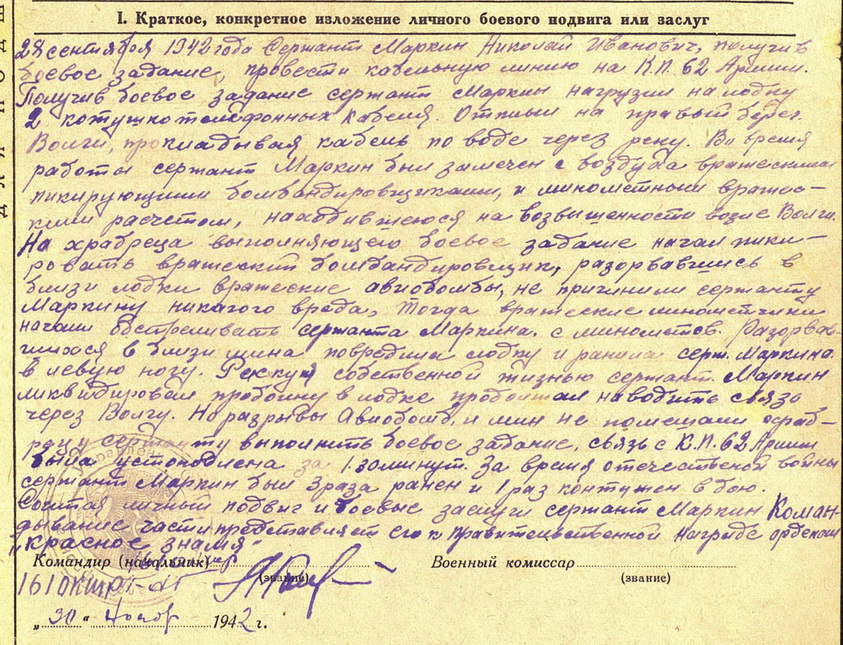 I. Краткое, конкретное изложение личного боевого подвига или заслуг
28 сентября 1942 года Сержант Маркин Николай Иванович, получив
боевое задание, провести кабельную линию на К.П. 62 Армии.
Получив боевое задание сержант Маркин нагрузил на лодку
2 котушко телефонных кабеля. Отплыл на правый берег
Волги, прокладывая кабель по воде через реку. Во время
работы сержант Маркин был замечен с воздуха вражескими
пикирующими бомбандировщиками, и минометным вражес-
ким расчетом, находившегося на возвышенности возле Волги.
На храбреца выполняющего боевое задание начал пики-
ровать вражеский бомбандировщик, разорвавшись в
близи лодки вражеские авиобомбы, не причинили сержанту
Маркину никагого вреда, тогда вражеские минометчики
начали обстреливать сержанта Маркина с минометов. Разорва-
вшиеся в близи мина повредила лодку и ранила серж. Маркина
в левую ногу. Рискуя собственной жизнью сержант Маркин
ликвидировал пробоину в лодке наводить связь
через Волгу. Но разрывы Авиобомб, и мин не помешали
сержанту выполнить боевое задание, связь с К.П. 62 Армии
была за 1.30 минут. За время отечественной войны
сержант Маркин был 3 раза ранен и 1 раз контужен в бою.
личный подвиг и боевые заслуги сержант Маркин Коман-
дывание части представляет его к правительственной награде орденом
"Красное знамя"
Командир (начальник) Военный комиссар
(звание) (звание)
"30" 1942 г.